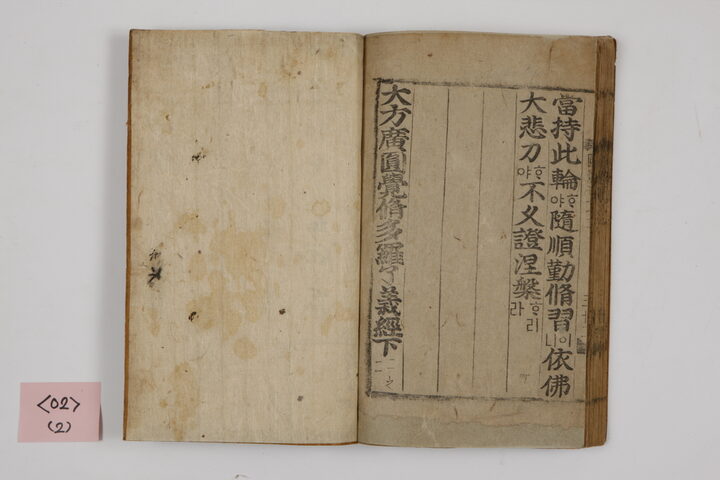 當持此輪ᄒᆞ야隨順勤脩習이니依佛
大悲力ᄒᆞ야不久證涅槃ᄒᆞ리라
大方廣圓覺脩多羅了義經下
<02>
(2)